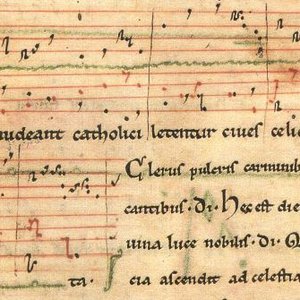 udeant catholici letentur ciues celi
Clerus pulcris carminib
cantibus · Di · Hec est die
uina luce nobilis · Di · Q
ta · cia ascendit ad celestia